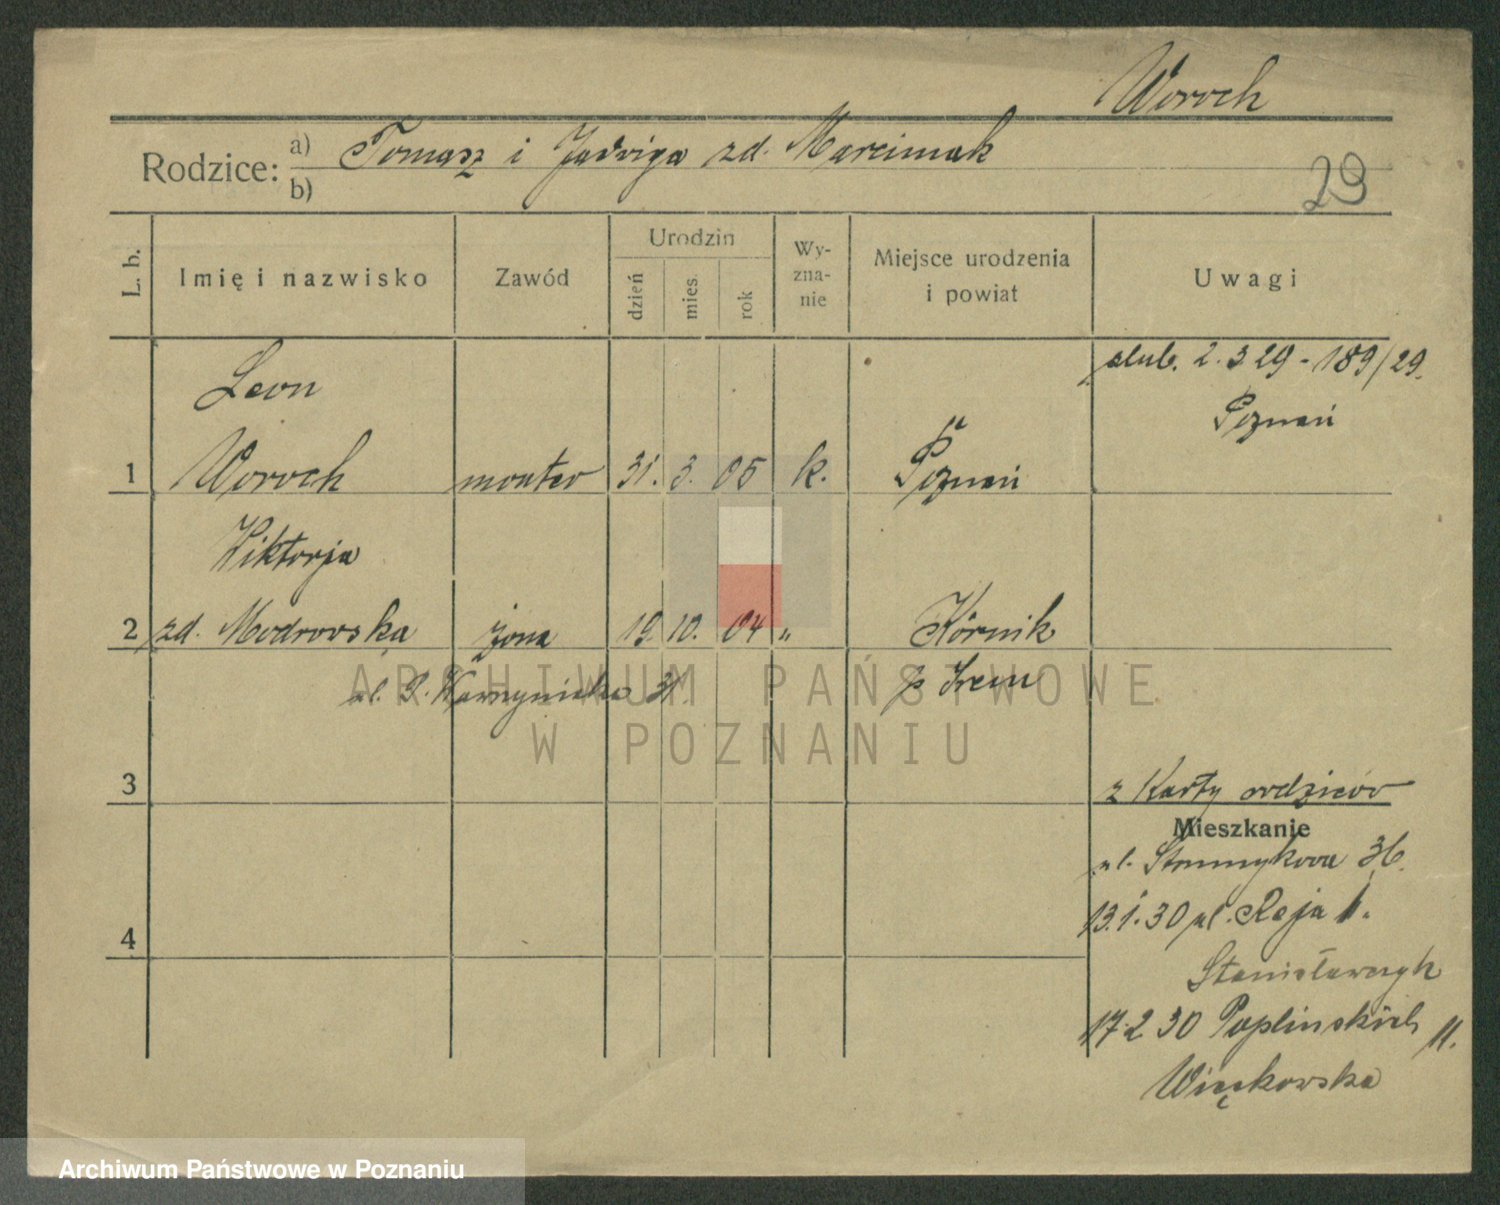 Woroch
Rodzice: a) Tomasz i Jadwiga zd. Marcimak
b)
29
L. b.
Imię i nazwisko
Zawód
Urodzin
dzień
mies.
rok
Wy-
zna-
nie
Miejsce urodzenia
i powiat
Uwagi
Leon
ślub. 2. 3 29 - 189/29.
Poznań
1 Woroch monter 31. 3. 05 k. Poznań
Wiktorja
2 zd. Modrowska żona 19. 10. 04 " Kórnik
p Śrem
ul. 31.
3
z Karty rodziców
Mieszkanie
ul. Strumykowa 36.
13.1.30 ul. Reja 1.
4
Stanisławczyk
17.2 30 Poplinskich 11.
Więckowska
ARCHIWUM PAŃSTWOWE
W POZNANIU
Archiwum Państwowe w Poznaniu